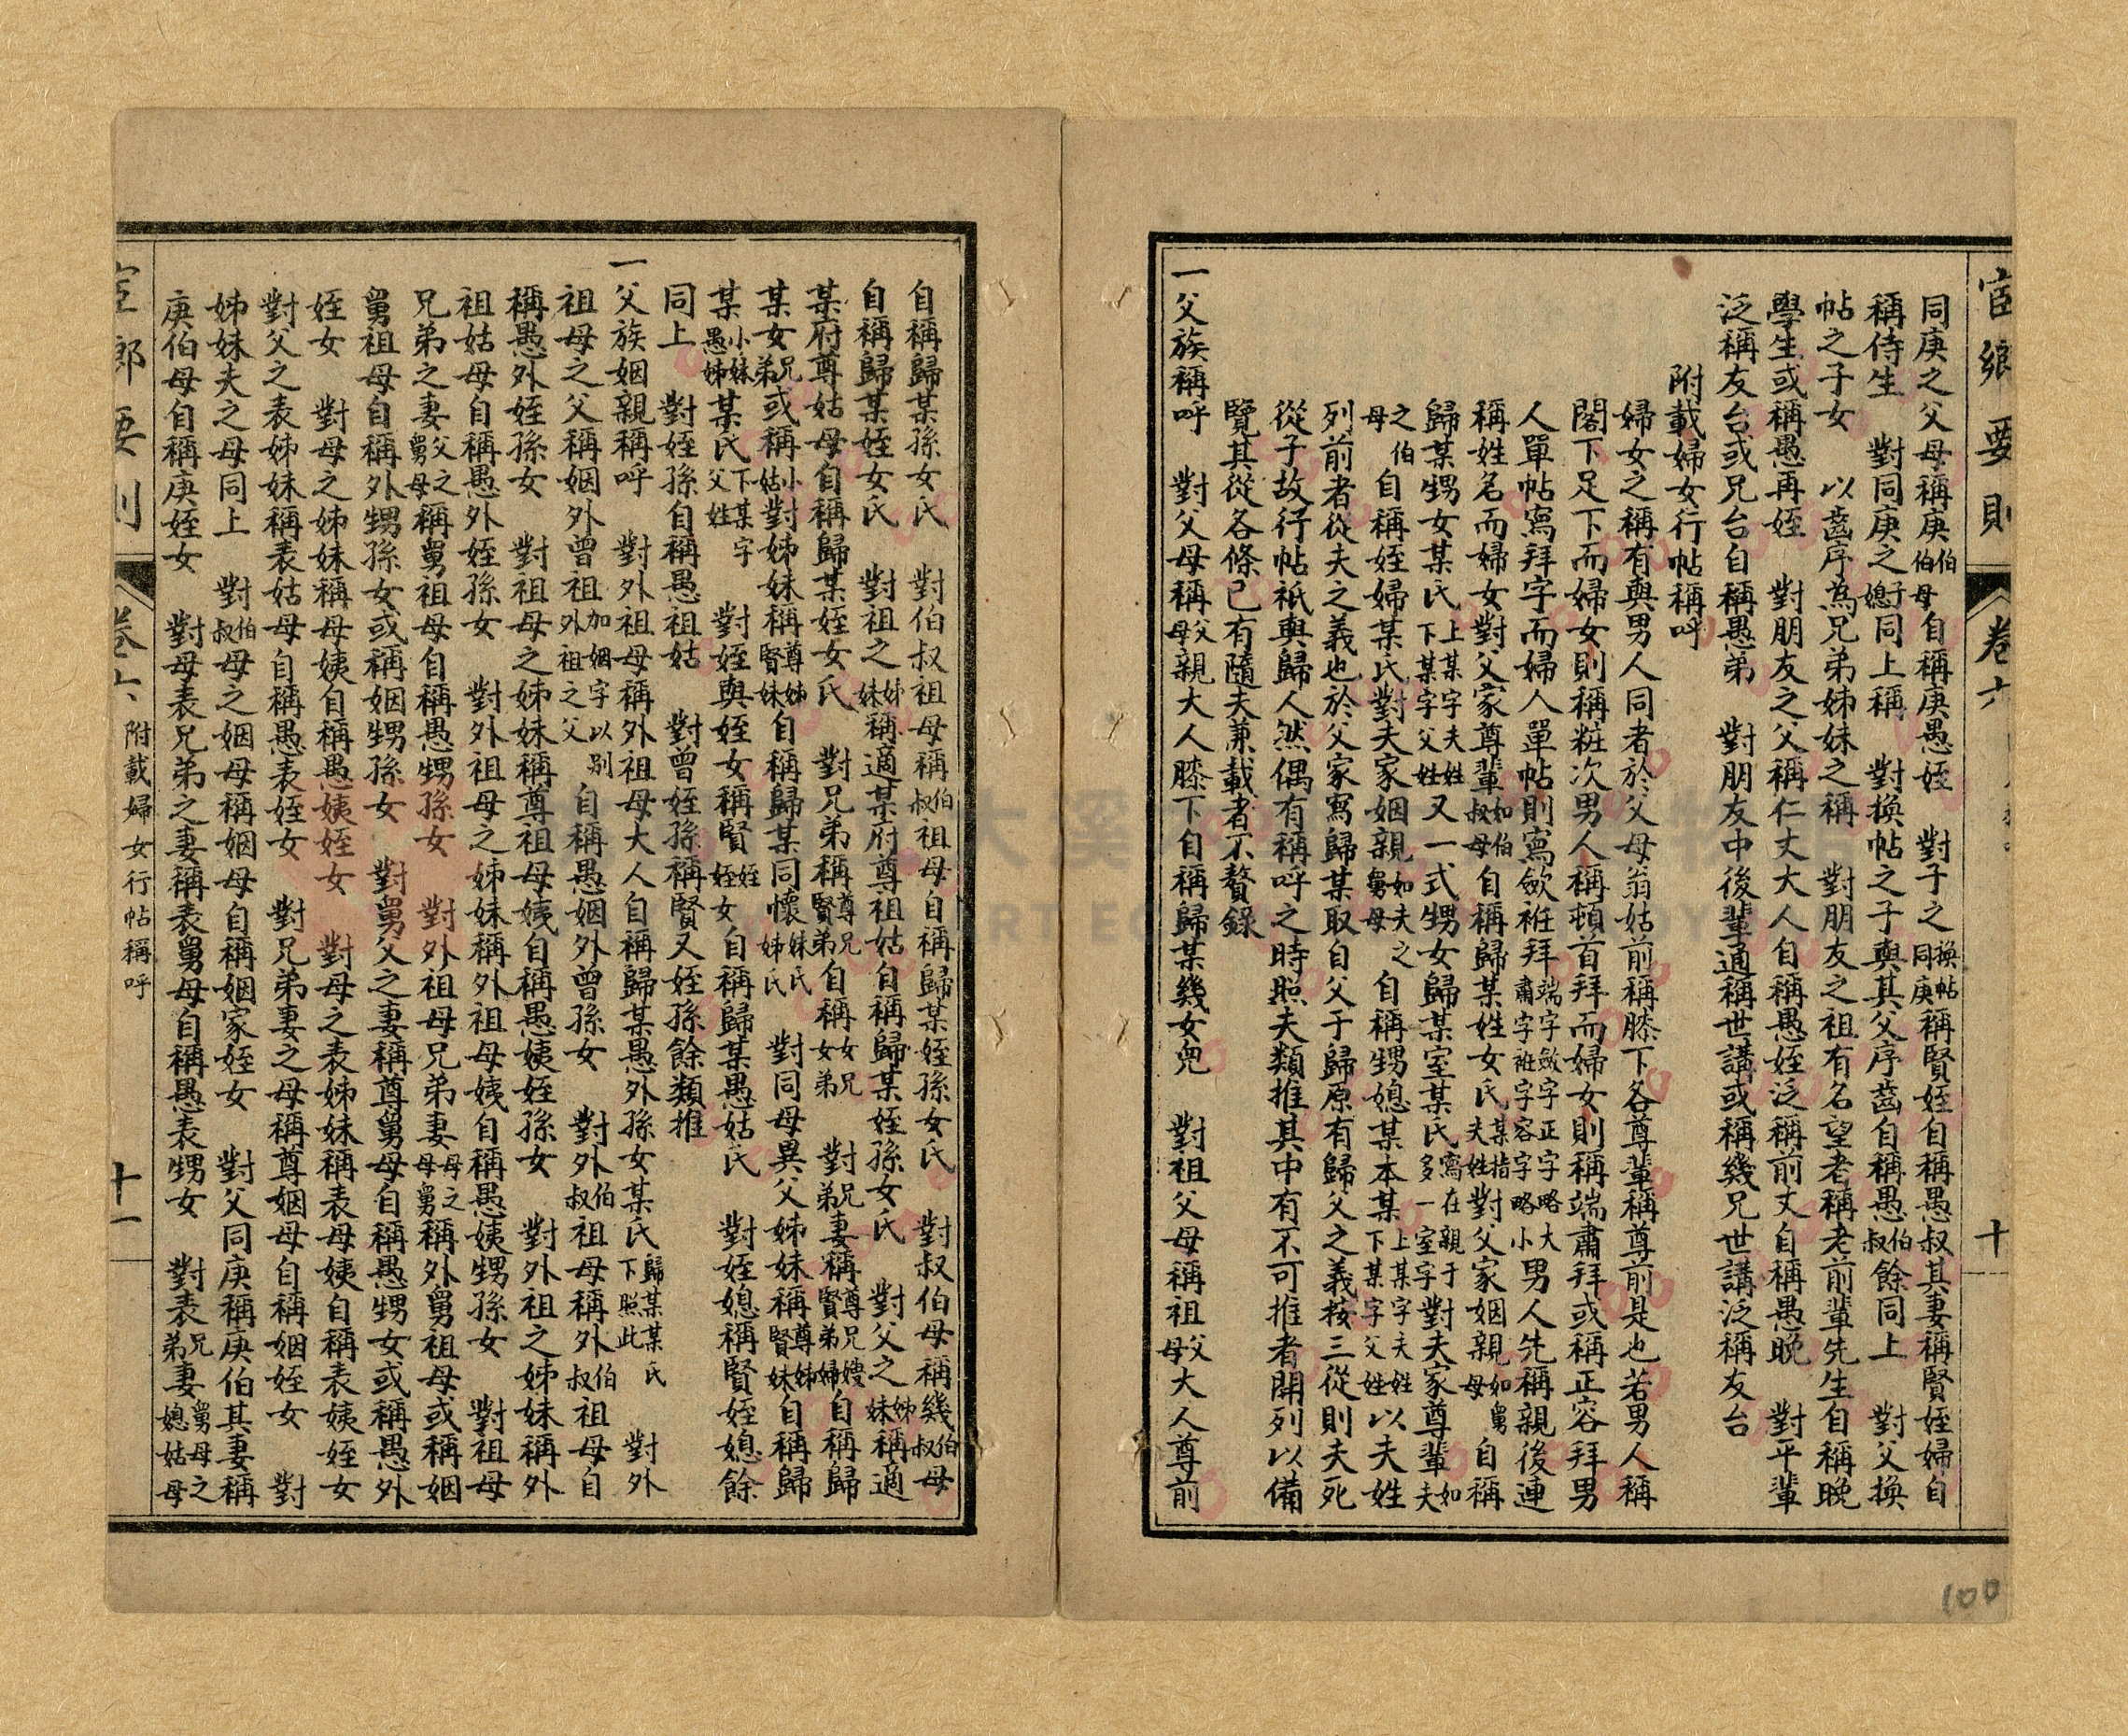 宦鄉要則
卷六
十
同庚之父母稱庚伯伯母自稱庚愚姪　對子之換帖同庚稱賢姪自稱愚叔其妻稱賢姪婦自
稱侍生　對同庚之子媳同上稱　對換帖之子與其父序齒自稱愚伯叔餘同上　對父換
帖之子女　以齒序為兄弟姊妹之稱　對朋友之祖有名望老稱老前輩先生自稱晚
學生或稱愚再姪　對朋友之父稱仁丈大人自稱愚姪泛稱前丈自稱愚晚　對平輩
泛稱友台或兄台自稱愚弟　對朋友中後輩通稱世講或稱幾兄世講泛稱友台
附載婦女行帖稱呼
婦女之稱有與男人同者於父母翁姑前稱膝下各尊輩稱尊前是也若男人稱
閣下足下而婦女則稱粧次男人稱頓首拜而婦女則稱端肅拜或稱正容拜男
人單帖寫拜字而婦人單帖則寫斂袵拜端字斂字正字略大肅字袵字容字略小男人先稱親後連
稱姓名而婦女對父家尊輩如伯叔母自稱歸某姓女氏某指夫姓對父家姻親如舅母自稱
歸某甥女某氏上某字夫姓下某字父姓又一式甥女歸某室某氏寫在親于多一室字對夫家尊輩如夫
之伯母自稱姪婦某氏對夫家姻親如夫之舅母自稱甥媳某本某上某字夫姓下某字父姓以夫姓
列前者從夫之義也於父家寫歸某取自父于歸原有歸父之義按三從則夫死
從子故行帖祇與歸人然偶有稱呼之時照夫類推其中有不可推者開列以備
覽其從各條已有隨夫兼載者不贅錄
一父族稱呼　對父母稱父母親大人膝下自稱歸某幾女兒　對祖父母稱祖父母大人尊前
自稱歸某孫女氏　對伯叔祖母稱伯叔祖母自稱歸某姪孫女氏　對叔伯母稱幾伯叔母
自稱歸某姪女氏　對祖之姊妹稱適某府尊祖姑自稱歸某姪孫女氏　對父之姊妹稱適
某府尊姑母自稱歸某姪女氏　對兄弟稱尊兄賢弟自稱女兄女弟　對兄弟妻稱尊兄嫂賢弟婦自稱歸
某女兄弟或稱小姑對姊妹稱尊姊賢妹自稱歸某同懷妹氏姊氏　對同母異父姊妹稱尊姊賢妹自稱歸
某小妹愚姊某氏下某字父姓　對姪與姪女稱賢姪姪女自稱歸某愚姑氏　對姪媳稱賢姪媳餘
同上　對姪孫自稱愚祖姑　對曾姪孫稱賢又姪孫餘類推
一父族姻親稱呼　對外祖父母稱外祖父母大人自稱歸某愚外孫女某氏歸某某氏下照此　對外
祖母之父稱姻外曾祖加姻字以別外祖之父自稱愚姻外曾孫女　對外伯叔祖母稱外伯叔祖母自
稱愚外姪孫女　對祖母之姊妹稱尊祖母姨自稱愚姨姪孫女　對外祖之姊妹稱外
祖姑母自稱愚外姪孫女　對外祖母之姊妹稱外祖母姨自稱愚姨甥孫女　對祖母
兄弟之妻父之舅母稱舅祖母自稱愚甥孫女　對外祖母兄弟妻母之母舅稱外舅祖母或稱姻
舅祖母自稱外甥孫女或稱姻甥孫女　對舅父之妻稱尊舅母自稱愚甥女或稱愚外
姪女　對母之姊妹稱母姨自稱愚姨姪女　對母之表姊妹稱表母姨自稱表姨姪女
對父之表姊妹稱表姑母自稱愚表姪女　對兄弟妻之母稱尊姻母自稱姻姪女　對
姊妹夫之母同上　對伯叔母之姻母稱姻母自稱姻家姪女　對父同庚稱庚伯其妻稱
庚伯母自稱庚姪女　對母表兄弟之妻稱表舅母自稱愚表甥女　對表兄弟妻舅母之媳姑母
卷六
附載婦女行帖稱呼
十一
100